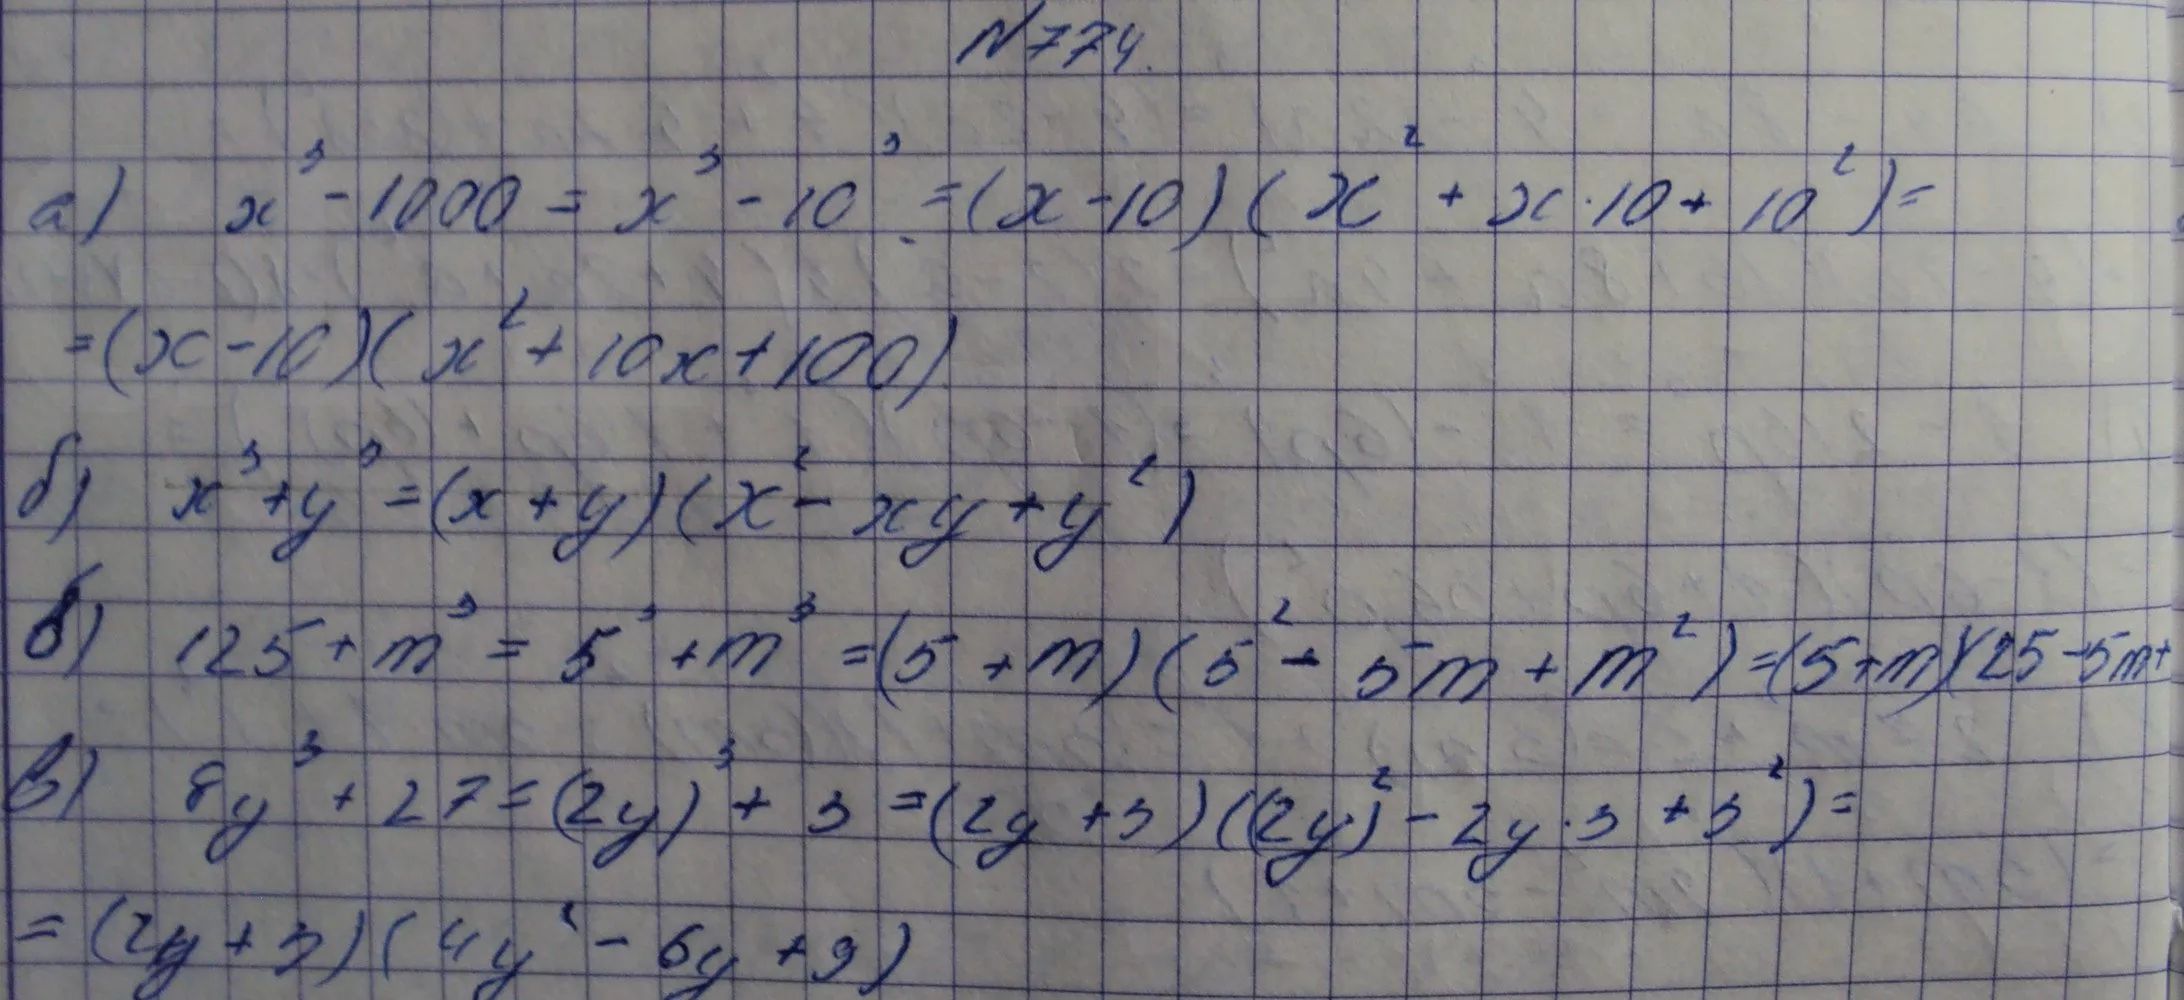 N 774.
а) x³ - 1000 = x³ - 10³ = (x - 10) (x² + x · 10 + 10²) =
= (x - 10)(x² + 10x + 100)
б) x³ + y³ = (x + y)(x² - xy + y²)
б) 125 + m³ = 5³ + m³ = (5 + m)(5² - 5m + m²) = (5 + m)(25 - 5m +
в) 8y³ + 27 = (2y)³ + 3 = (2y + 3)((2y)² - 2y · 3 + 3²) =
= (2y + 3)(4y² - 6y + 9)